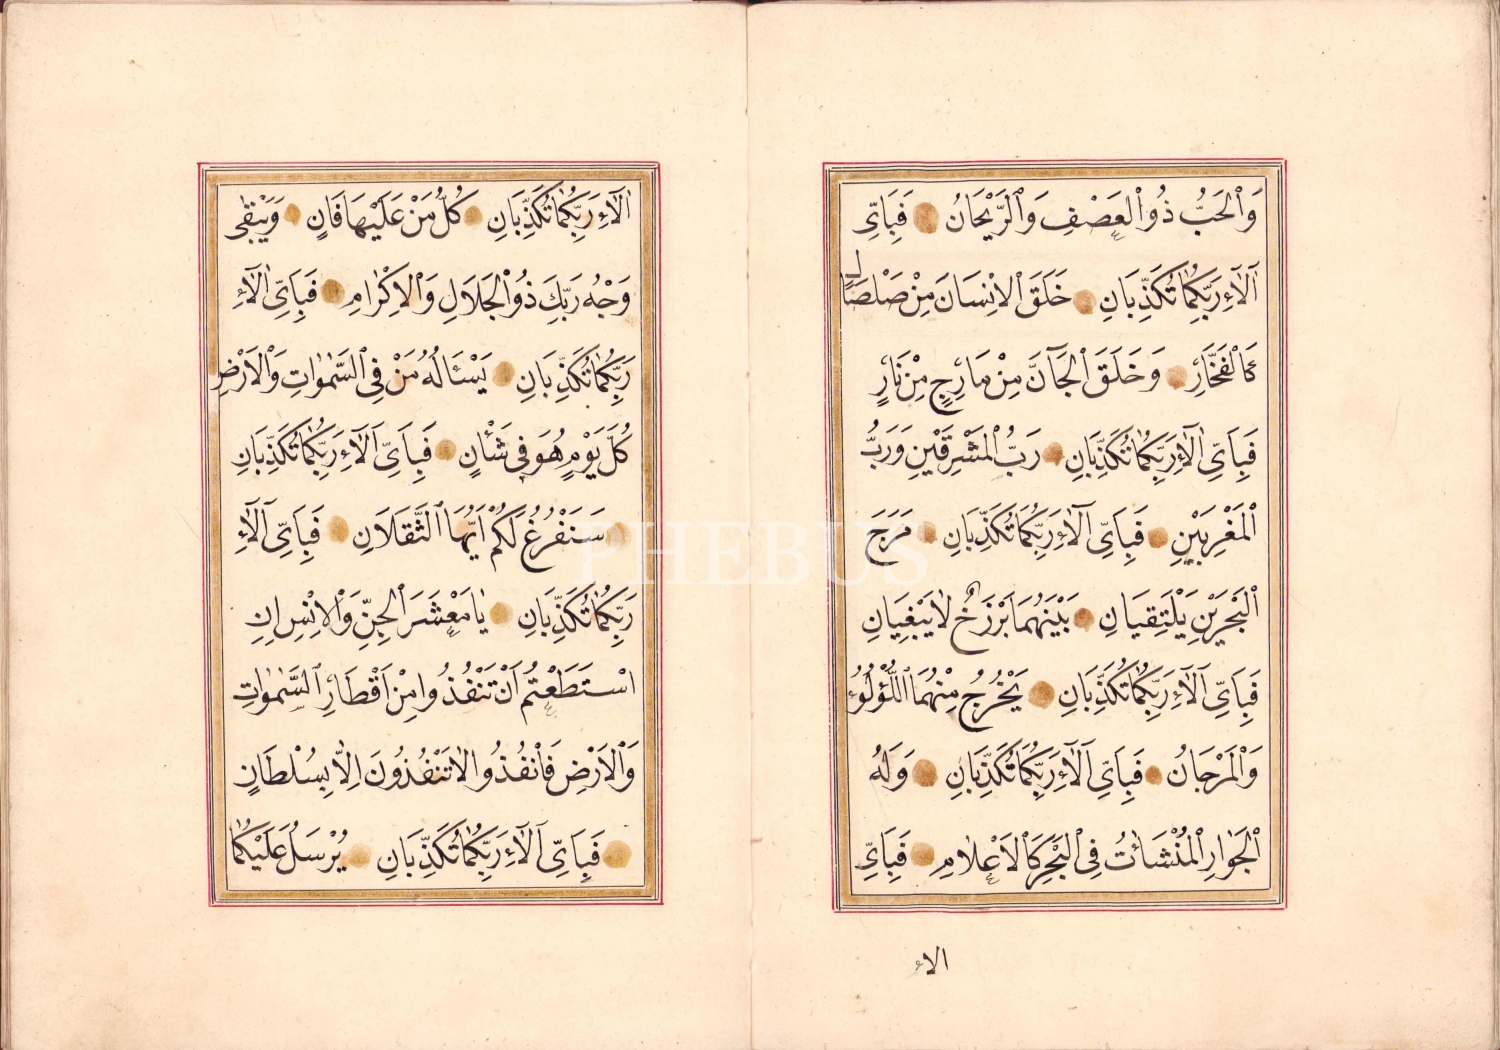 وَٱلْحَبُّ ذُو ٱلْعَصْفِ وَٱلرَّيْحَانُ فَبِاَيِّ
اَلَٓاءِ رَبِّكُمَا تُكَذِّبَانِ خَلَقَ ٱلْاِنْسَانَ مِنْ صَلْصَالٍ
كَالْفَخَّارِ وَخَلَقَ ٱلْجَآنَّ مِنْ مَارِجٍ مِنْ نَارٍ
فَبِاَيِّ اٰلَٓاءِ رَبِّكُمَا تُكَذِّبَانِ رَبُّ ٱلْمَشْرِقَيْنِ وَرَبُّ
ٱلْمَغْرِبَيْنِ فَبِاَيِّ اٰلَٓاءِ رَبِّكُمَا تُكَذِّبَانِ مَرَجَ
ٱلْبَحْرَيْنِ يَلْتَقِيَانِ بَيْنَهُمَا بَرْزَخٌ لَا يَبْغِيَانِ
فَبِاَيِّ اٰلَٓاءِ رَبِّكُمَا تُكَذِّبَانِ يَخْرُجُ مِنْهُمَا ٱللُّؤْلُؤُ
وَٱلْمَرْجَانُ فَبِاَيِّ اٰلَٓاءِ رَبِّكُمَا تُكَذِّبَانِ وَلَهُ
ٱلْجَوَارِ ٱلْمُنْشَاٰتُ فِى ٱلْبَحْرِ كَالْاَعْلَامِ فَبِاَيِّ
الاء
اٰلَٓاءِ رَبِّكُمَا تُكَذِّبَانِ كُلُّ مَنْ عَلَيْهَا فَانٍ وَيَبْقٰى
وَجْهُ رَبِّكَ ذُو ٱلْجَلَالِ وَٱلْاِكْرَامِ فَبِاَيِّ اٰلَٓاءِ
رَبِّكُمَا تُكَذِّبَانِ يَسْـَٔالُهُ مَنْ فِى ٱلسَّمٰوَاتِ وَٱلْاَرْضِ
كُلَّ يَوْمٍ هُوَ فِى شَأْنٍ فَبِاَيِّ اٰلَٓاءِ رَبِّكُمَا تُكَذِّبَانِ
سَنَفْرُغُ لَكُمْ اَيُّهَا ٱلثَّقَلَانِ فَبِاَيِّ اٰلَٓاءِ
رَبِّكُمَا تُكَذِّبَانِ يَا مَعْشَرَ ٱلْجِنِّ وَٱلْاِنْسِ اِنِ
اسْتَطَعْتُمْ اَنْ تَنْفُذُوا مِنْ اَقْطَارِ ٱلسَّمٰوَاتِ
وَٱلْاَرْضِ فَانْفُذُوا لَا تَنْفُذُونَ اِلَّا بِسُلْطَانٍ
فَبِاَيِّ اٰلَٓاءِ رَبِّكُمَا تُكَذِّبَانِ يُرْسَلُ عَلَيْكُمَا
PHEBUS